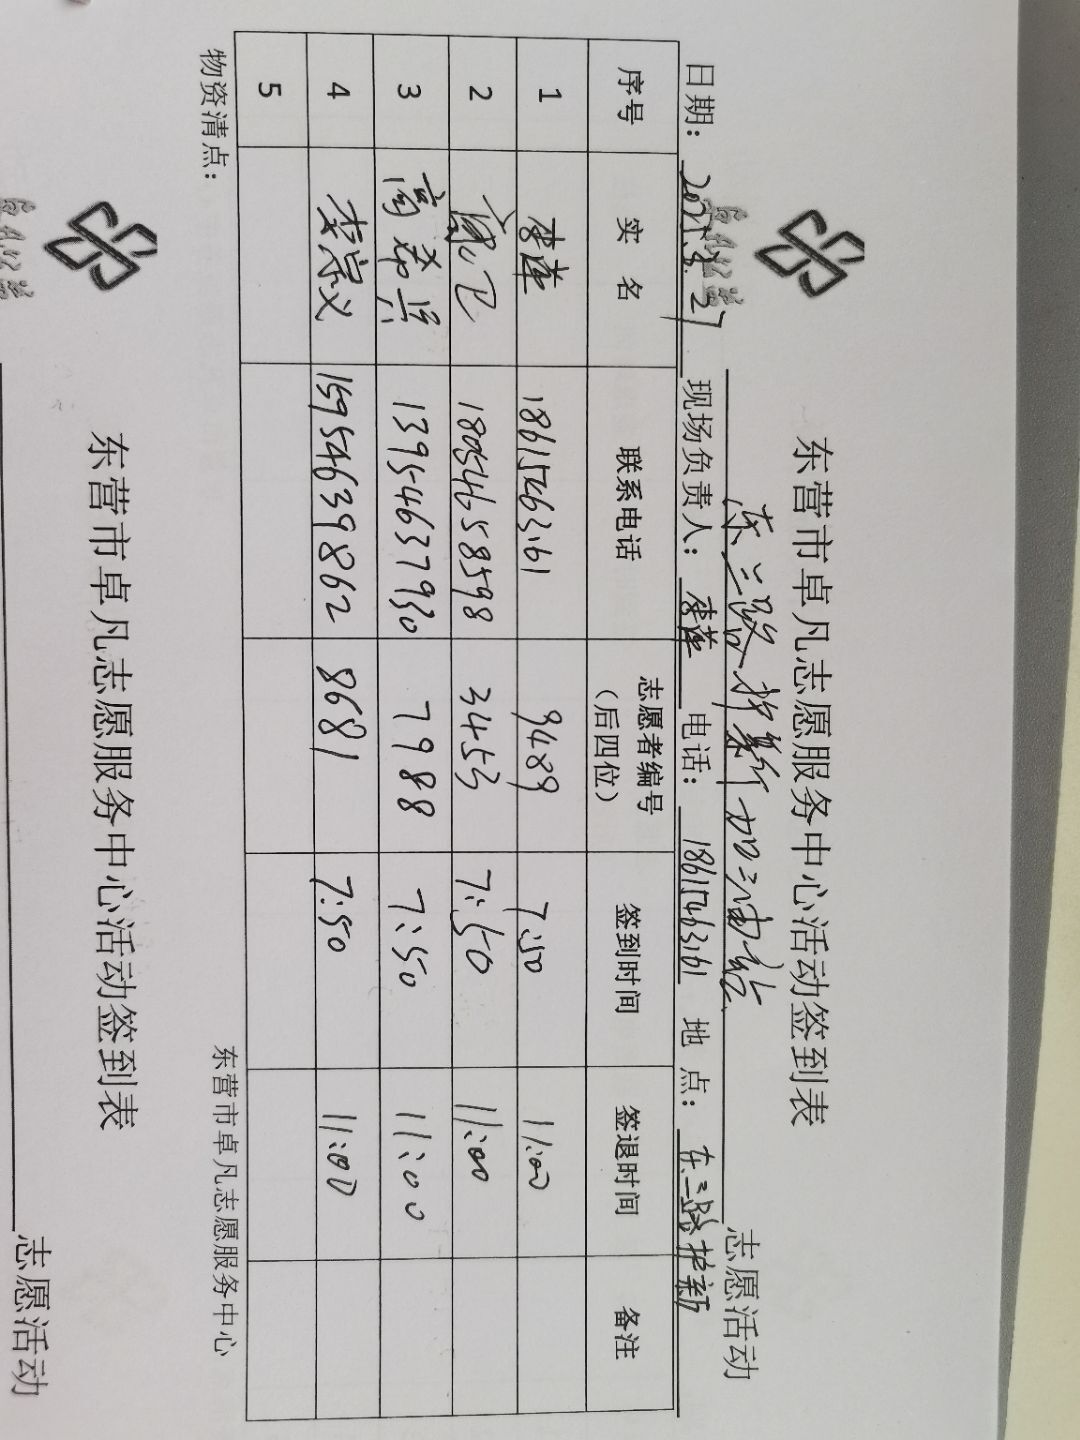 东营市卓凡志愿服务中心活动签到表
东三路 加油站 志愿活动
日期： 现场负责人： 李莲 电话： 18615463161 地 点： 东三路
序号 实 名 联系电话 志愿者编号（后四位） 签到时间 签退时间 备注
1 李莲 18615463161 9489 7:50 11:00
2 18054658598 3453 7:50 11:00
3 高希兵 13954637930 7988 7:50 11:00
4 李宗义 15954639862 8681 7:50 11:00
5
物资清点： 东营市卓凡志愿服务中心
东营市卓凡志愿服务中心活动签到表
志愿活动